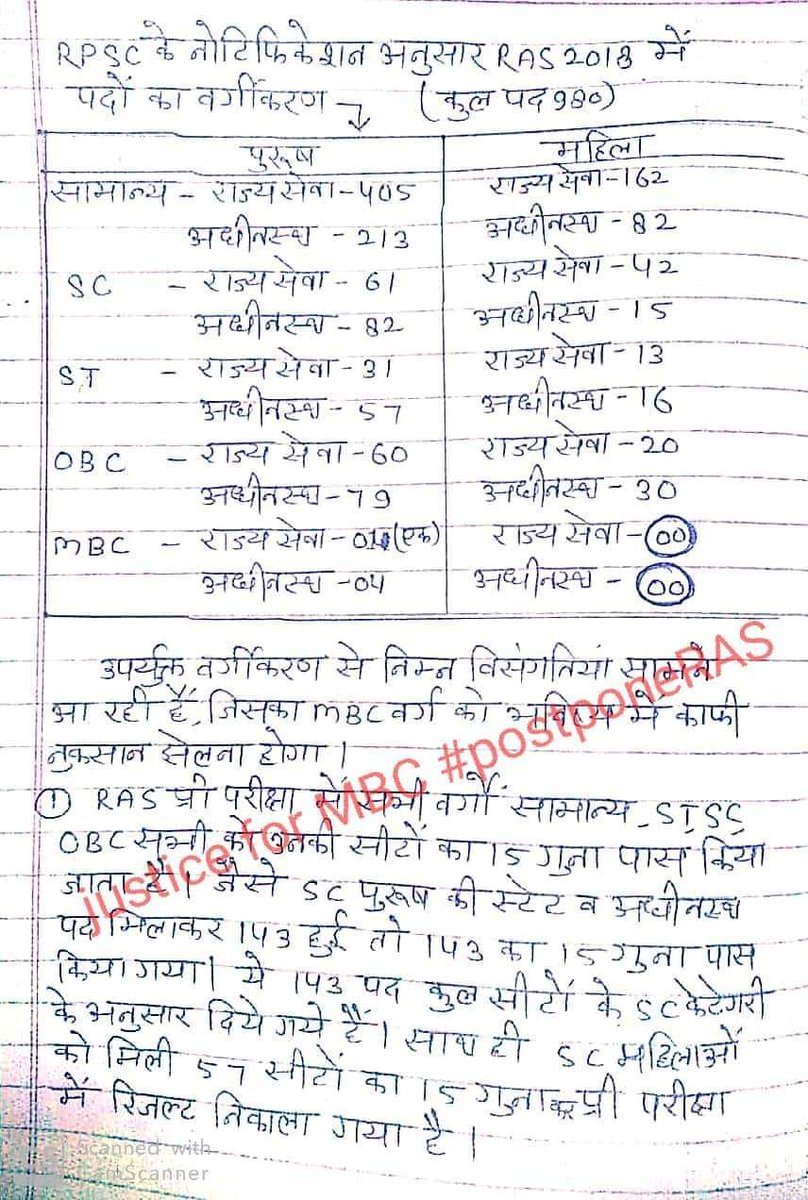 RPSC के नोटिफिकेशन अनुसार RAS 2018 में
पदों का वर्गीकरण → (कुल पद 980)
पुरुष महिला
सामान्य - राज्य सेवा - 405 राज्य सेवा - 162
अधीनस्थ - 213 अधीनस्थ - 82
SC - राज्य सेवा - 61 राज्य सेवा - 42
अधीनस्थ - 82 अधीनस्थ - 15
ST - राज्य सेवा - 31 राज्य सेवा - 13
अधीनस्थ - 57 अधीनस्थ - 16
OBC - राज्य सेवा - 60 राज्य सेवा - 20
अधीनस्थ - 79 अधीनस्थ - 30
MBC - राज्य सेवा - 01 (एक) राज्य सेवा - 00
अधीनस्थ - 04 अधीनस्थ - 00
उपर्युक्त वर्गीकरण से निम्न विसंगतियां सामने
आ रही हैं, जिसका MBC वर्ग को भविष्य में काफी
नुकसान झेलना होगा।
① RAS प्री परीक्षा में सभी वर्गों सामान्य, ST, SC,
OBC सभी को उनकी सीटों का 15 गुना पास किया
जाता है। जैसे SC पुरुष की स्टेट व अधीनस्थ
पद मिलाकर 143 हुई तो 143 का 15 गुना पास
किया गया। ये 143 पद कुल सीटों के SC केटेगरी
के अनुसार दिये गये हैं। साथ ही SC महिलाओं
को मिली 57 सीटों का 15 गुना कर प्री परीक्षा
में रिजल्ट निकाला गया है।
justice for MBC #postponeRAS
Scanned with
CamScanner